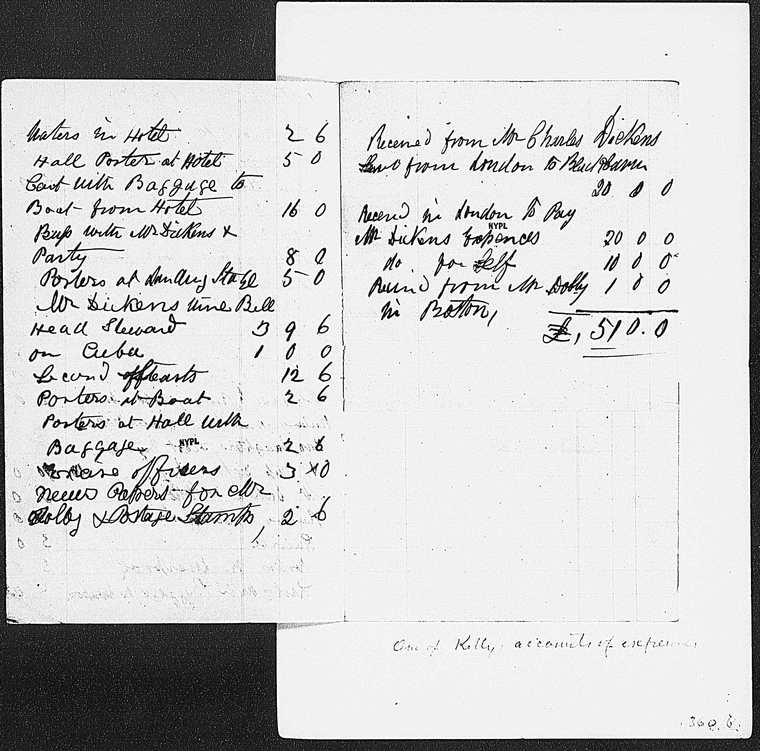 Waters in Hotel 2 6
Hall Porter at Hotel 5 0
Cart with Baggage to
Boat from Hotel 16 0
Bus with Mr Dickens &
Party 8 0
Porters at Landing Stage 5 0
Mr Dickens Wine Bill
Head Steward 3 9 6
on Cuba 1 0 0
Second 12 6
Porters at Boat 2 6
Porters at Hall with
Baggage 2 6
NYPL
officers 3 0
News Papers for Mr
Dolby & Postage Stamps, 2 6
Received from Mr Charles Dickens
from London to
20 0 0
Received in London To Pay
NYPL
Mr Dickens Expences 20 0 0
do for Self 10 0 0
Received from Mr Dolby 1 0 0
in Boston,
£, 51 0. 0
One of Kelly accounts of expenses
360. 6.